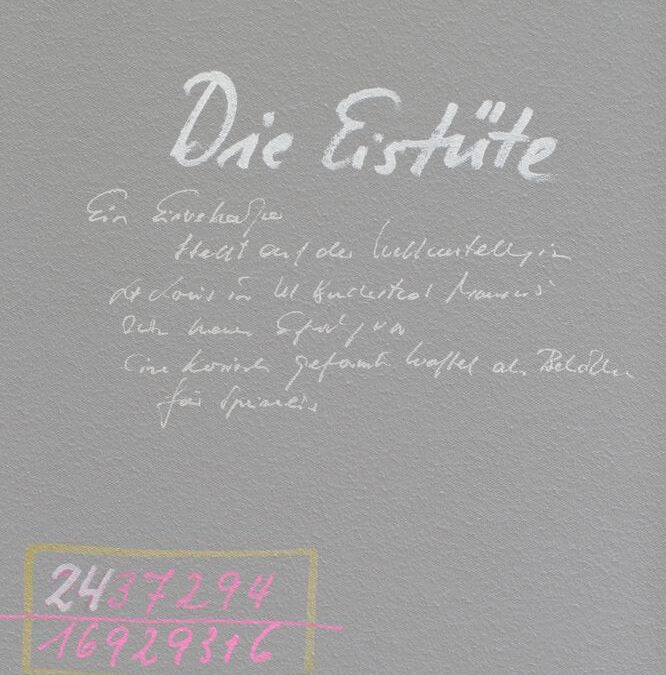 Die Eistüte
Ein
stellt auf der Weltausstellung in
St Louis in US Bundesstaat
eine konisch geformte Waffel als Behälter
für Speiseeis
2437294
16929316